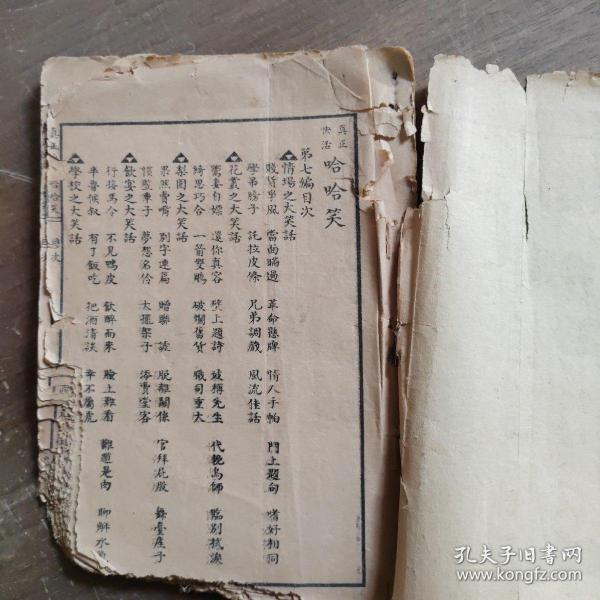 真正
快活
哈哈笑
第七編目次
情場之大笑話
賤貨爭風 當面瞞過 革命懸牌 情人手帕 門上題句 嗜好相同
學吊膀子 託拉皮條 兄弟調戲 風流佳話
花叢之大笑話
還你真容 壁上題詩 妓稱先生 代輓烏師 臨別拭淚
綺思巧合 一箭雙鵰 破爛舊貨 職司重大
梨園之大笑話
果然賣嘴 別字連篇 贈聯 脫離關係 官拜屁股 舞臺産子
夢想名伶 大擺架子 添賣堂客
飲宴之大笑話
行接馬令 不見鴨皮 飲醉而來 臉上難看 難道是肉 聊解水
半魯候叙 有了飯吃 把酒清談 幸不屬虎
學校之大笑話
孔夫子旧书网
www.kongfz.com